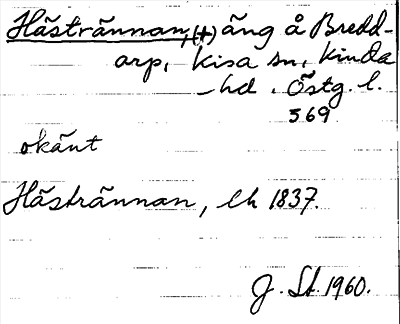 Hästrännan, (+) äng å Bredd-
arp, Kisa sn, Kinda
hd. Östg. l.
569
okänt
Hästrännan, lh 1837.
J. St. 1960.